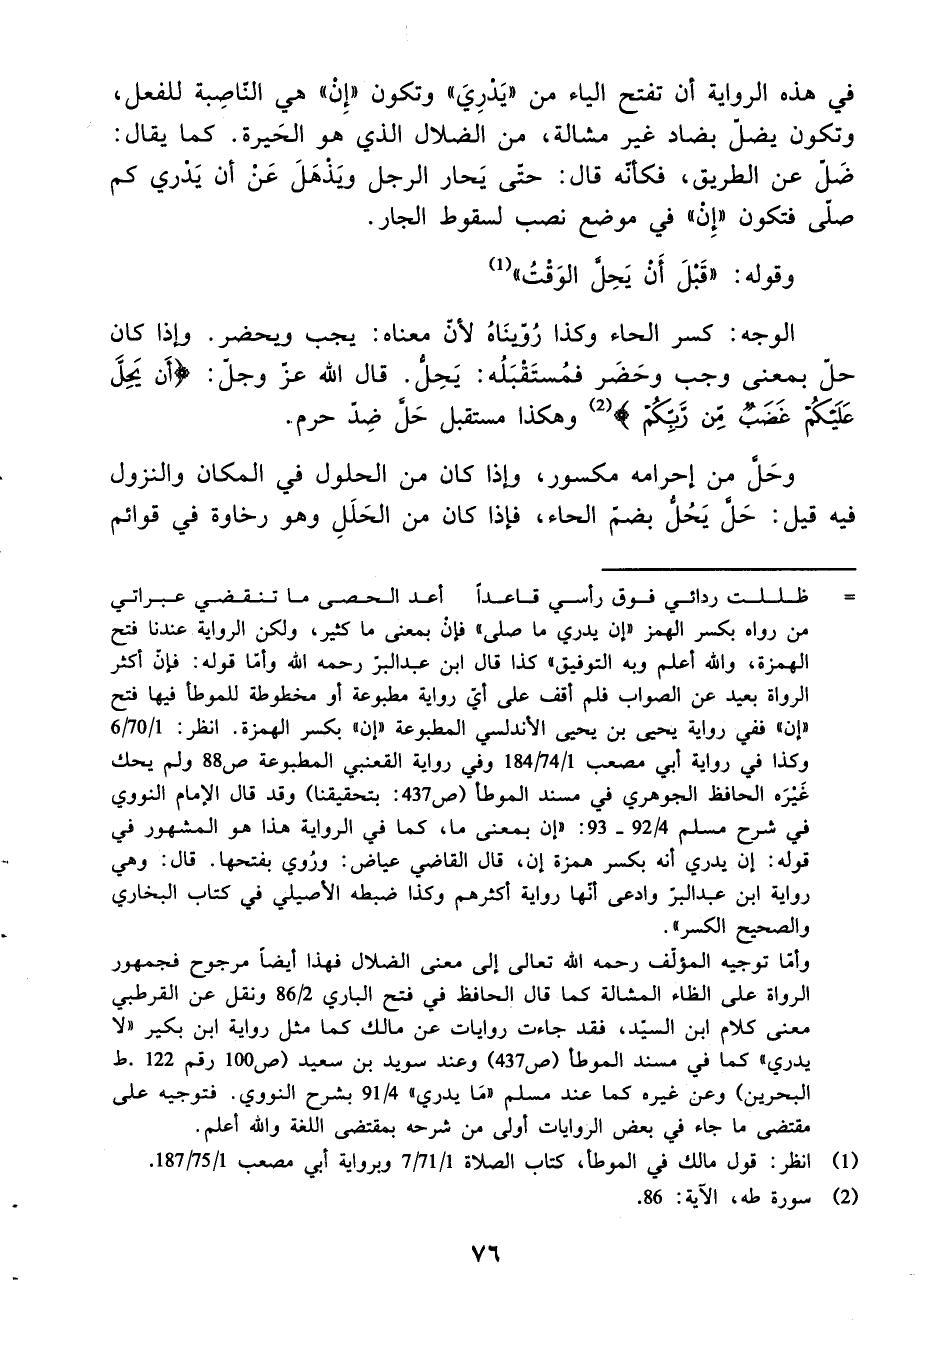 في هذه الرواية أن تفتح الياء من «يَدْرِيَ» وتكون «إِنْ» هي النّاصِبة للفعل،
وتكون يضلّ بضاد غير مشالة، من الضلال الذي هو الحَيرة. كما يقال:
ضَلّ عن الطريق، فكأنّه قال: حتّى يَحار الرجل ويَذْهَلَ عَنْ أن يَدْري كم
صلّى فتكون «إِنْ» في موضع نصب لسقوط الجار.
وقوله: «قَبْلَ أَنْ يَحِلَّ الوَقْتُ»(1)
الوجه: كسر الحاء وكذا رُوّينَاهُ لأنّ معناه: يجب ويحضر. وإذا كان
حلّ بمعنى وجب وحَضَر فمُستَقْبَلُه: يَحِلُّ. قال الله عزّ وجلّ: ﴿أَن يَحِلَّ
عَلَيْكُمْ غَضَبٌ مِّن رَّبِّكُمْ﴾(2) وهكذا مستقبل حَلَّ ضِدّ حرم.
وحَلَّ من إحرامه مكسور، وإذا كان من الحلول في المكان والنزول
فيه قيل: حَلَّ يَحُلُّ بضمّ الحاء، فإذا كان من الحَلَلِ وهو رخاوة في قوائم
= ظللت ردائي فوق رأسي قاعداً أعد الحصى ما تنقضي عبراتي
من رواه بكسر الهمز «إن يدري ما صلى» فإنْ بمعنى ما كثير، ولكن الرواية عندنا فتح
الهمزة، والله أعلم وبه التوفيق» كذا قال ابن عبدالبرّ رحمه الله وأمّا قوله: فإنّ أكثر
الرواة بعيد عن الصواب فلم أقف على أيّ رواية مطبوعة أو مخطوطة للموطأ فيها فتح
«إن» ففي رواية يحيى بن يحيى الأندلسي المطبوعة «إن» بكسر الهمزة. انظر: 6/70/1
وكذا في رواية أبي مصعب 184/74/1 وفي رواية القعنبي المطبوعة ص88 ولم يحك
غَيْرَه الحافظ الجوهري في مسند الموطأ (ص437: بتحقيقنا) وقد قال الإمام النووي
في شرح مسلم 92/4 ـ 93: «إن بمعنى ما، كما في الرواية هذا هو المشهور في
قوله: إن يدري أنه بكسر همزة إن، قال القاضي عياض: ورُوي بفتحها. قال: وهي
رواية ابن عبدالبرّ وادعى أنّها رواية أكثرهم وكذا ضبطه الأصيلي في كتاب البخاري
والصحيح الكسر».
وأمّا توجيه المؤلّف رحمه الله تعالى إلى معنى الضلال فهذا أيضاً مرجوح فجمهور
الرواة على الظاء المشالة كما قال الحافظ في فتح الباري 86/2 ونقل عن القرطبي
معنى كلام ابن السيّد، فقد جاءت روايات عن مالك كما مثل رواية ابن بكير «لا
يدري» كما في مسند الموطأ (ص437) وعند سويد بن سعيد (ص100 رقم 122 .ط
البحرين) وعن غيره كما عند مسلم «مَا يدري» 91/4 بشرح النووي. فتوجيه على
مقتضى ما جاء في بعض الروايات أولى من شرحه بمقتضى اللغة والله أعلم.
(1) انظر: قول مالك في الموطأ، كتاب الصلاة 7/71/1 وبرواية أبي مصعب 187/75/1.
(2) سورة طه، الآية: 86.
٧٦